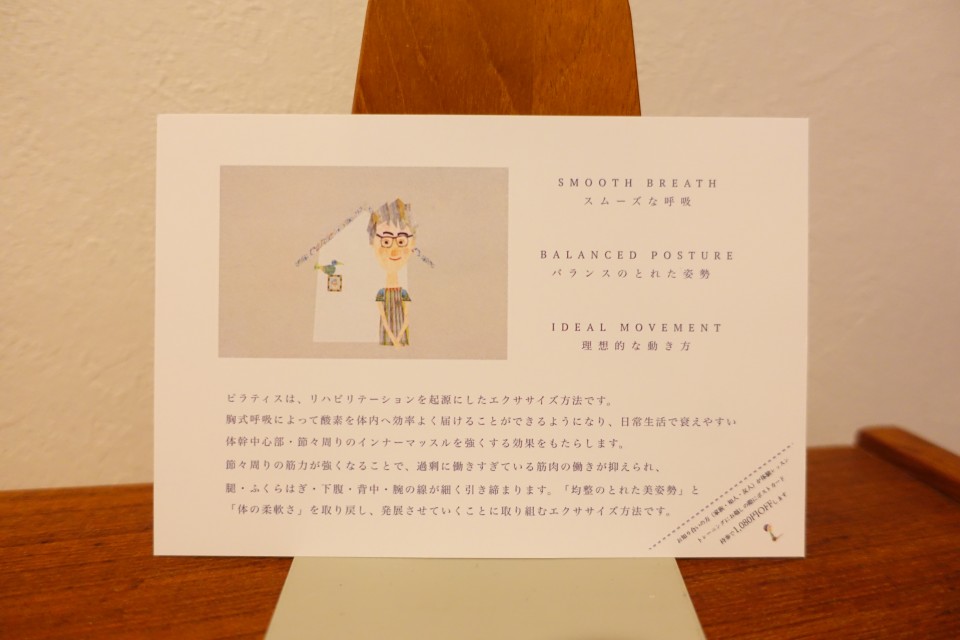 SMOOTH BREATH
スムーズな呼吸
BALANCED POSTURE
バランスのとれた姿勢
IDEAL MOVEMENT
理想的な動き方
ピラティスは、リハビリテーションを起源にしたエクササイズ方法です。
胸式呼吸によって酸素を体内へ効率よく届けることができるようになり、日常生活で衰えやすい
体幹中心部・節々周りのインナーマッスルを強くする効果をもたらします。
節々周りの筋力が強くなることで、過剰に働きすぎている筋肉の働きが抑えられ、
腿・ふくらはぎ・下腹・背中・腕の線が細く引き締まります。「均整のとれた美姿勢」と
「体の柔軟さ」を取り戻し、発展させていくことに取り組むエクササイズ方法です。
お知り合いの方(家族・知人・友人)が体験レッスン
トレーニングにお越しの際にポストカード
持参で1,080円OFFします